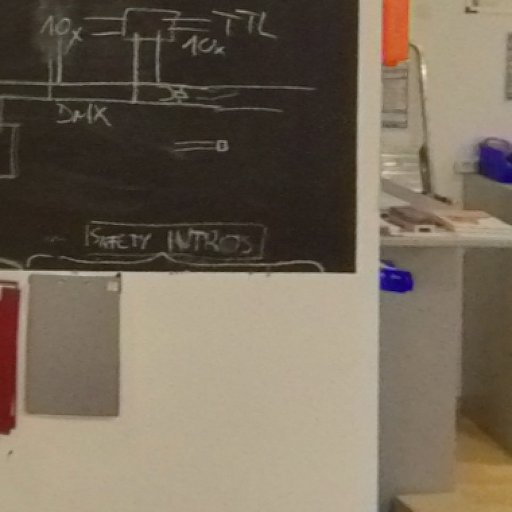 10x TTL
10x
DMX
SAFETY INTROS